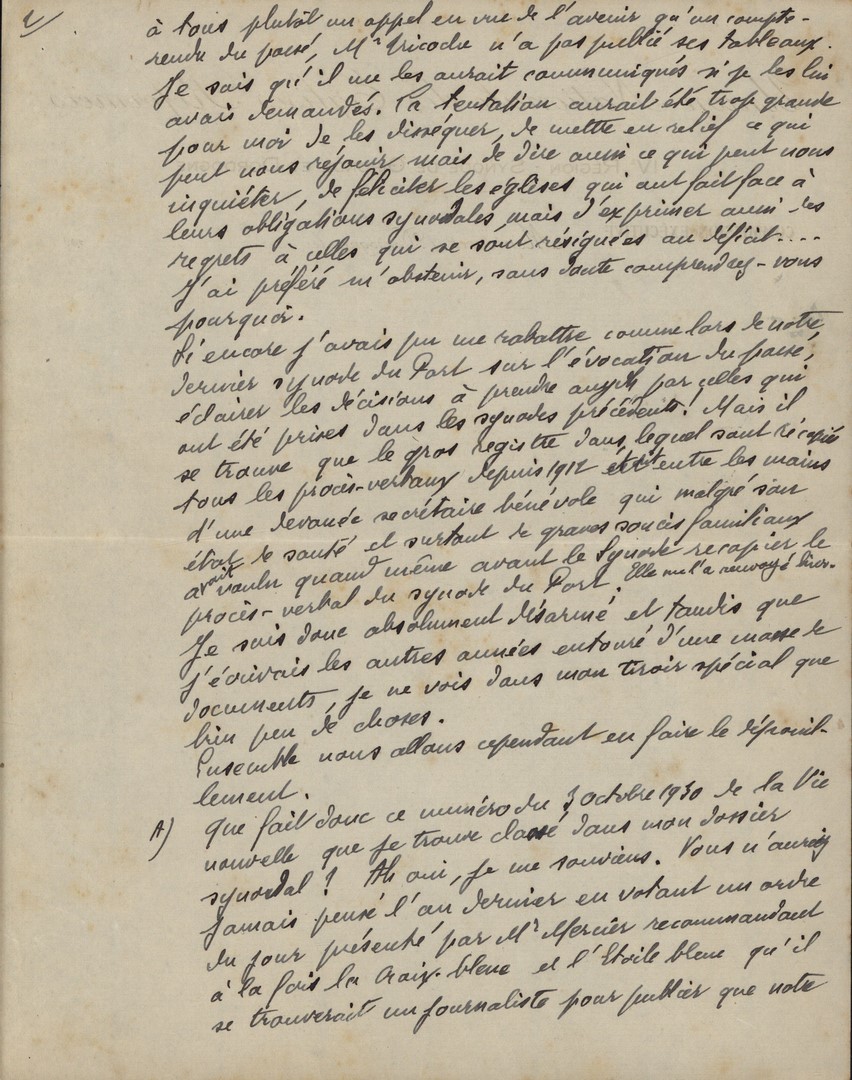 2/
à tous plutôt un appel en vue de l'avenir qu'un compte-
rendu du passé, Mr Bricodu n'a pas publié ses tableaux.
Je sais qu'il me les aurait communiqués si je les lui
avais demandés. La tentation aurait été trop grande
pour moi de les disséquer, de mettre en relief ce qui
peut nous réjouir mais de dire aussi ce qui peut nous
inquiéter, de féliciter les églises qui ont fait face à
leurs obligations synodales mais d'exprimer aussi des
regrets à celles qui se sont résignées au déficit....
J'ai préféré m'abstenir, sans doute comprendrez-vous
pourquoi.
Si encore j'avais pu me rabattre comme lors de notre
dernier synode du Port sur l'évocation du passé,
éclairer les décisions à prendre aujdh par celles qui
ont été prises dans les synodes précédents! Mais il
se trouve que le gros registre dans lequel sont recopiés
tous les procès-verbaux depuis 1912 était entre les mains
d'une dévouée secrétaire bénévole qui malgré son
état de santé et surtout de graves soucis familiaux
avait voulu quand même avant le Synode recopier le
procès-verbal du synode du Port. Elle me l'a renvoyé hier.
Je suis donc absolument désarmé et tandis que
j'écrivais les autres années entouré d'une masse de
documents, je ne vois dans mon tiroir spécial que
bien peu de choses.
Ensemble nous allons cependant en faire le dépouil-
lement.
A) Que fait donc ce numéro du 3 octobre 1930 de la Vie
nouvelle que je trouve classé dans mon dossier
synodal? Ah oui, je me souviens. Vous n'auriez
jamais pensé l'an dernier en votant un ordre
du jour présenté par Mr Mercier recommandant
à la fois la Croix-bleue et l'Etoile bleue qu'il
se trouverait un journaliste pour publier que notre